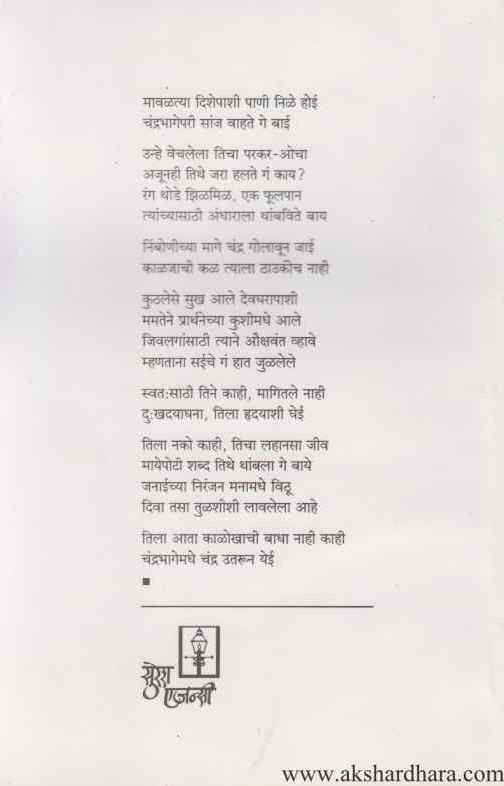 मावळत्या दिशेपाशी पाणी निळे होई
चंद्रभागेपरी सांज वाहते गे बाई
उन्हे वेचलेला तिचा परकर-ओचा
अजूनही तिथे जरा हलते गं काय?
रंग थोडे झिळमिळ, एक फूलपान
त्यांच्यासाठी अंधाराला थांबविते बाय
निंबोणीच्या मागे चंद्र गोलावून जाई
काळजाची कळ त्याला ठाउकीच नाही
कुठलेसे सुख आले देवघरापाशी
ममतेने प्रार्थनेच्या कुशीमधे आले
जिवलगांसाठी त्याने औक्षवंत व्हावे
म्हणताना सईचे गं हात जुळलेले
स्वत:साठी तिने काही, मागितले नाही
दु:खदयाघना, तिला हृदयाशी घेई
तिला नको काही, तिचा लहानसा जीव
मायेपोटी शब्द तिथे थांबला गे बाये
जनाईच्या निरंजन मनामधे विठू
दिवा तसा तुळशीशी लावलेला आहे
तिला आता काळोखाची बाधा नाही काही
चंद्रभागेमधे चंद्र उतरून येई
सुरेश
एजन्सी
www.akshardhara.com